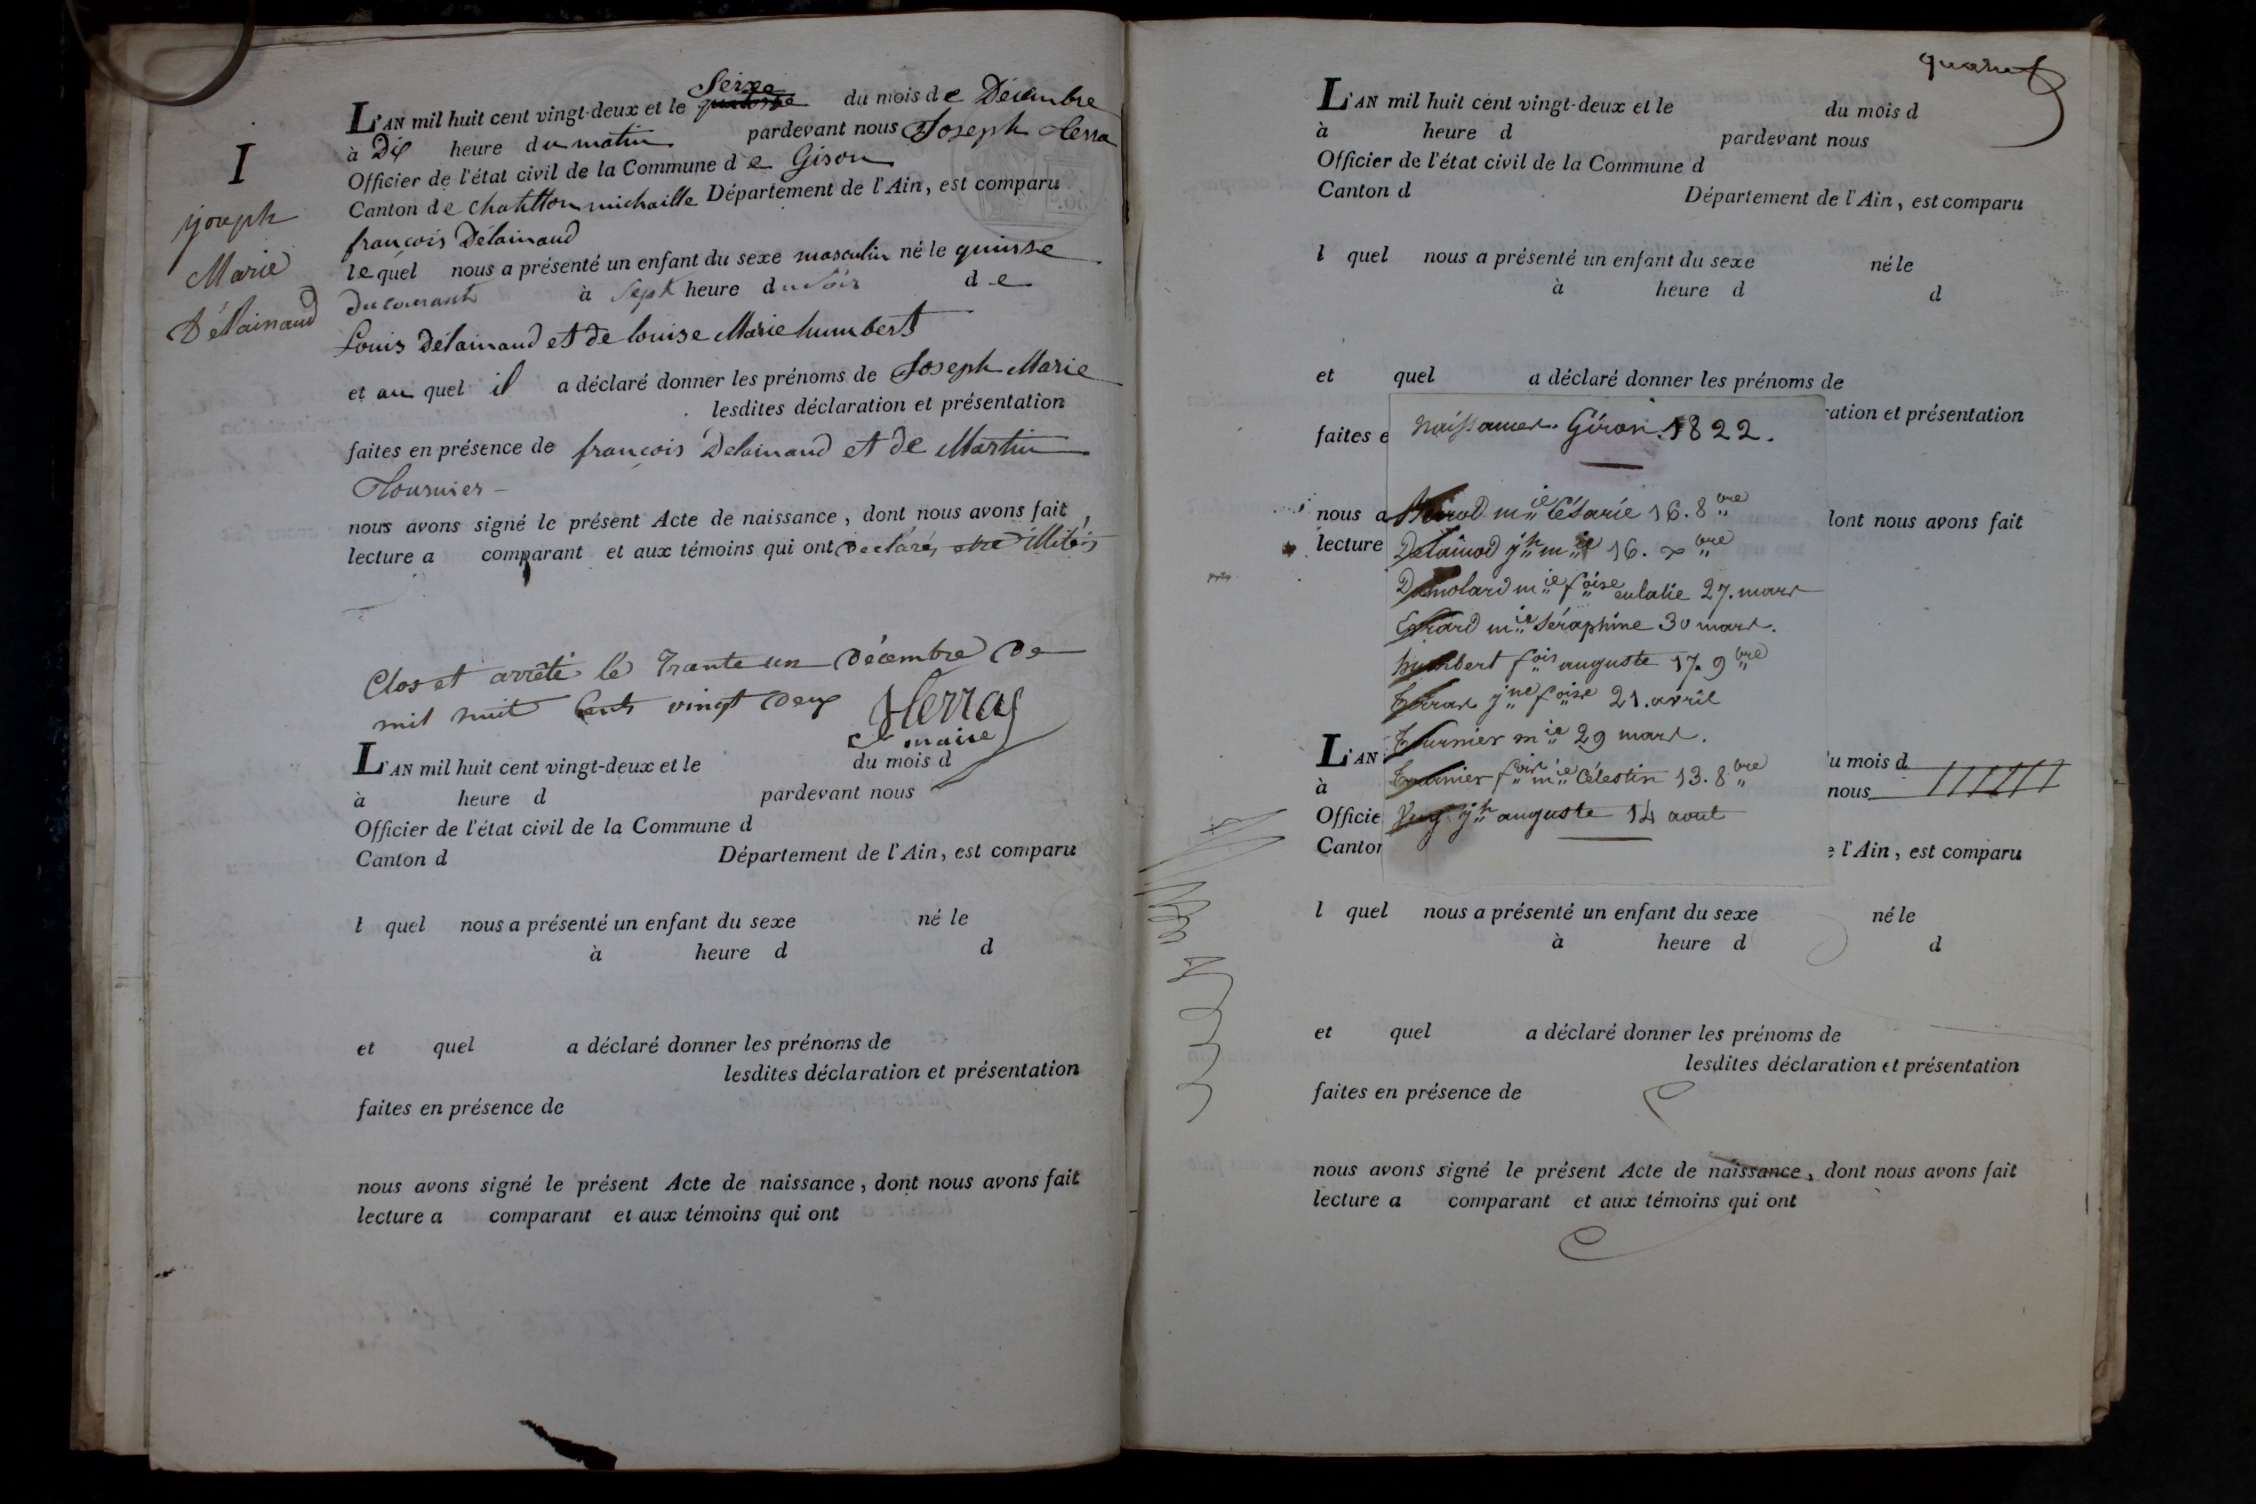 Seize
L'AN mil huit cent vingt-deux et le quatorze du mois de Décembre
à Dix heure du matin pardevant nous Joseph Herra
Officier de l'état civil de la Commune de Giron
Canton de chatillon michaille Département de l'Ain, est comparu
françois Délainaud
lequel nous a présenté un enfant du sexe masculin né le quinse
du courant à Sept heure du soir de
Louis Délainaud et de louise Marie humbert
et au quel il a déclaré donner les prénoms de Joseph Marie
lesdites déclaration et présentation
faites en présence de françois Delainaud et de Martin
Tournier
nous avons signé le présent Acte de naissance, dont nous avons fait
lecture a comparant et aux témoins qui ont declarés etre illiterés
I
joseph
Marie
Délainaud
Clos et arrêté le Trante un décembre de
mil huit Cents vingt deux Herra
maire
L'AN mil huit cent vingt-deux et le du mois d
à heure d pardevant nous
Officier de l'état civil de la Commune d
Canton d Département de l'Ain, est comparu
l quel nous a présenté un enfant du sexe né le
à heure d d
et quel a déclaré donner les prénoms de
lesdites déclaration et présentation
faites en présence de
nous avons signé le présent Acte de naissance, dont nous avons fait
lecture a comparant et aux témoins qui ont
L'AN mil huit cent vingt-deux et le du mois d
à heure d pardevant nous
Officier de l'état civil de la Commune d
Canton d Département de l'Ain, est comparu
l quel nous a présenté un enfant du sexe né le
à heure d d
et quel a déclaré donner les prénoms de
ration et présentation
faites e
nous a lont nous avons fait
lecture
Naissances Giron 1822.
mie Césarie 16. 8bre
Delainod jh mie 16. xbre
Dumolard mie foise eulalie 27. mars
Evrard mie Séraphine 30 mars.
humbert fois auguste 17. 9bre
jne foise 21. avril
Tournier mie 29 mars.
Tournier fois mie Célestin 13. 8bre
jh auguste 14 aout
L'AN u mois d
à nous
Officie
Canton e l'Ain, est comparu
l quel nous a présenté un enfant du sexe né le
à heure d d
et quel a déclaré donner les prénoms de
lesdites déclaration et présentation
faites en présence de
nous avons signé le présent Acte de naissance, dont nous avons fait
lecture a comparant et aux témoins qui ont